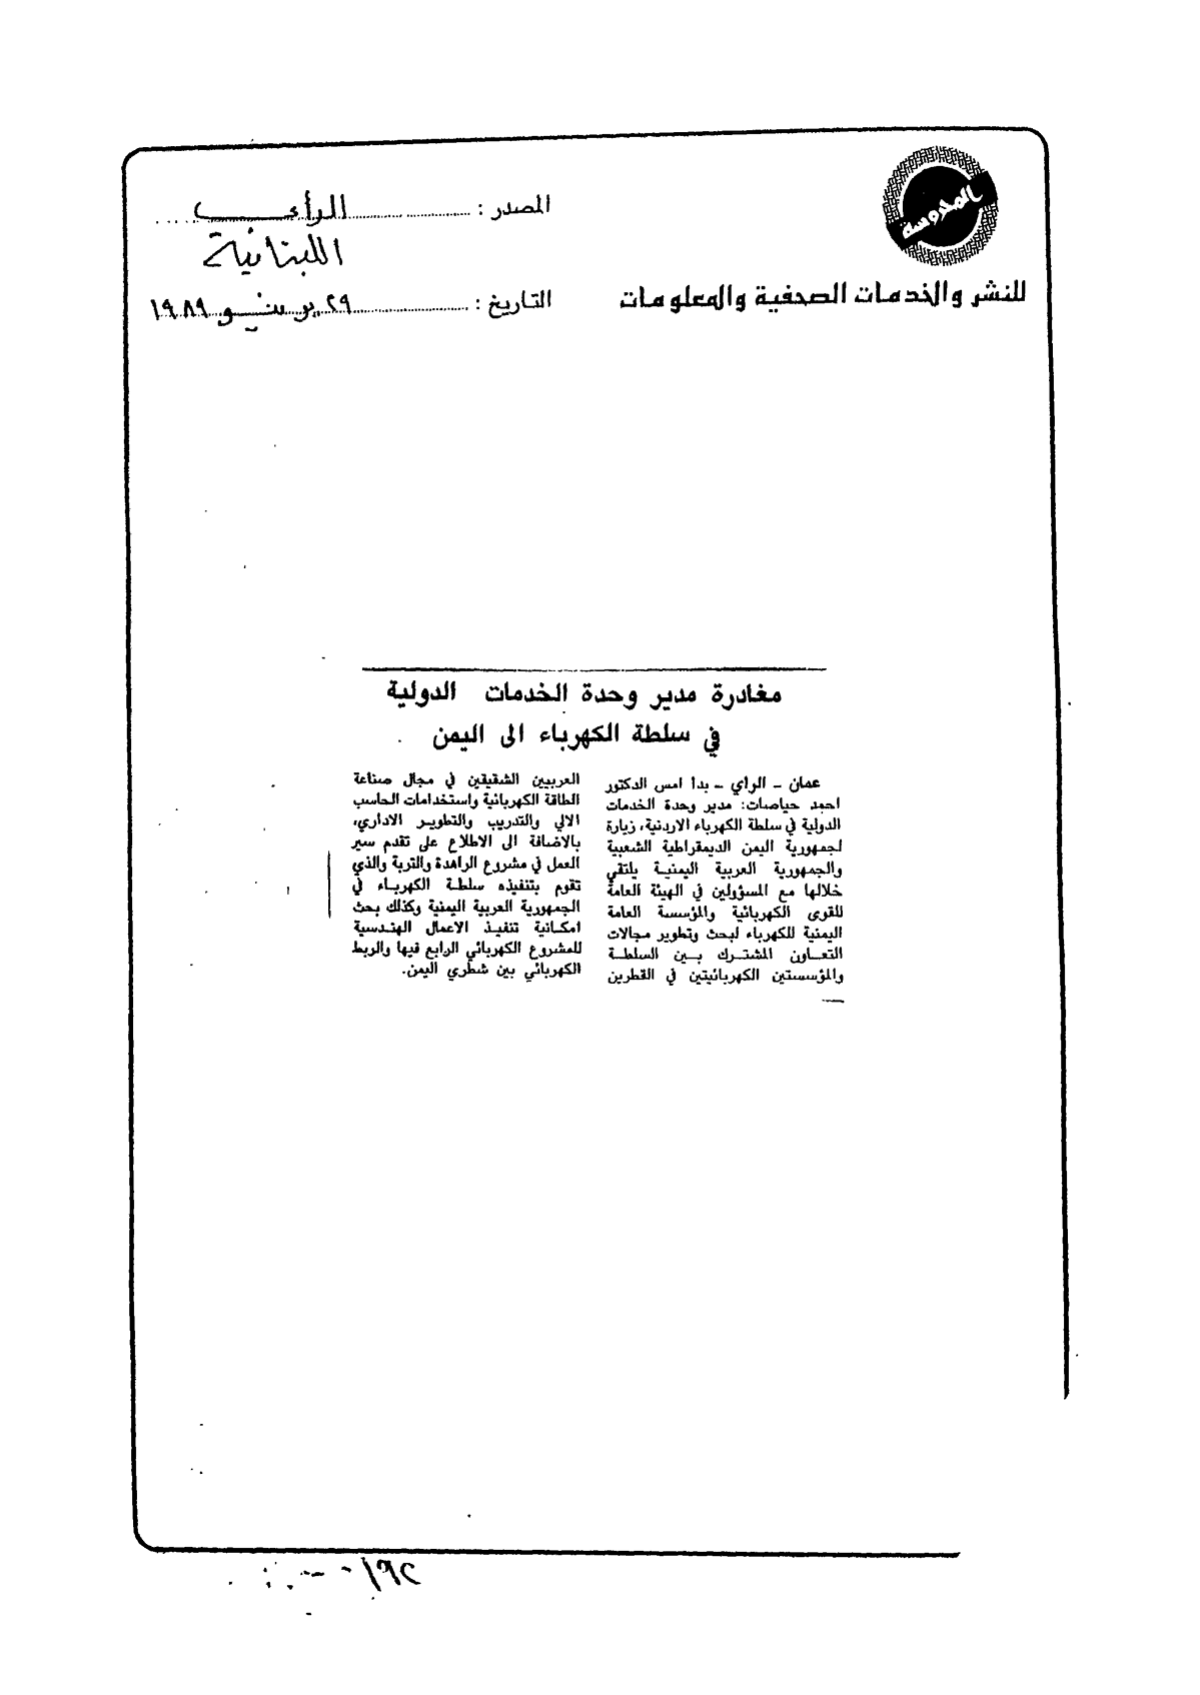 المحروسة
للنشر والخدمات الصحفية والمعلومات
المصدر : الرأي
اللبنانية
التاريخ : ٢٩ يونيو ١٩٨٩
مغادرة مدير وحدة الخدمات الدولية
في سلطة الكهرباء الى اليمن
عمان - الراي - بدأ امس الدكتور
احمد حياصات: مدير وحدة الخدمات
الدولية في سلطة الكهرباء الاردنية، زيارة
لجمهورية اليمن الديمقراطية الشعبية
والجمهورية العربية اليمنية يلتقي
خلالها مع المسؤولين في الهيئة العامة
للقوى الكهربائية والمؤسسة العامة
اليمنية للكهرباء لبحث وتطوير مجالات
التعاون المشترك بين السلطة
والمؤسستين الكهربائيتين في القطرين
العربيين الشقيقين في مجال صناعة
الطاقة الكهربائية واستخدامات الحاسب
الالي والتدريب والتطوير الاداري،
بالاضافة الى الاطلاع على تقدم سير
العمل في مشروع الراهدة والتربة والذي
تقوم بتنفيذه سلطة الكهرباء في
الجمهورية العربية اليمنية وكذلك بحث
امكانية تنفيذ الاعمال الهندسية
للمشروع الكهربائي الرابع فيها والربط
الكهربائي بين شطري اليمن.